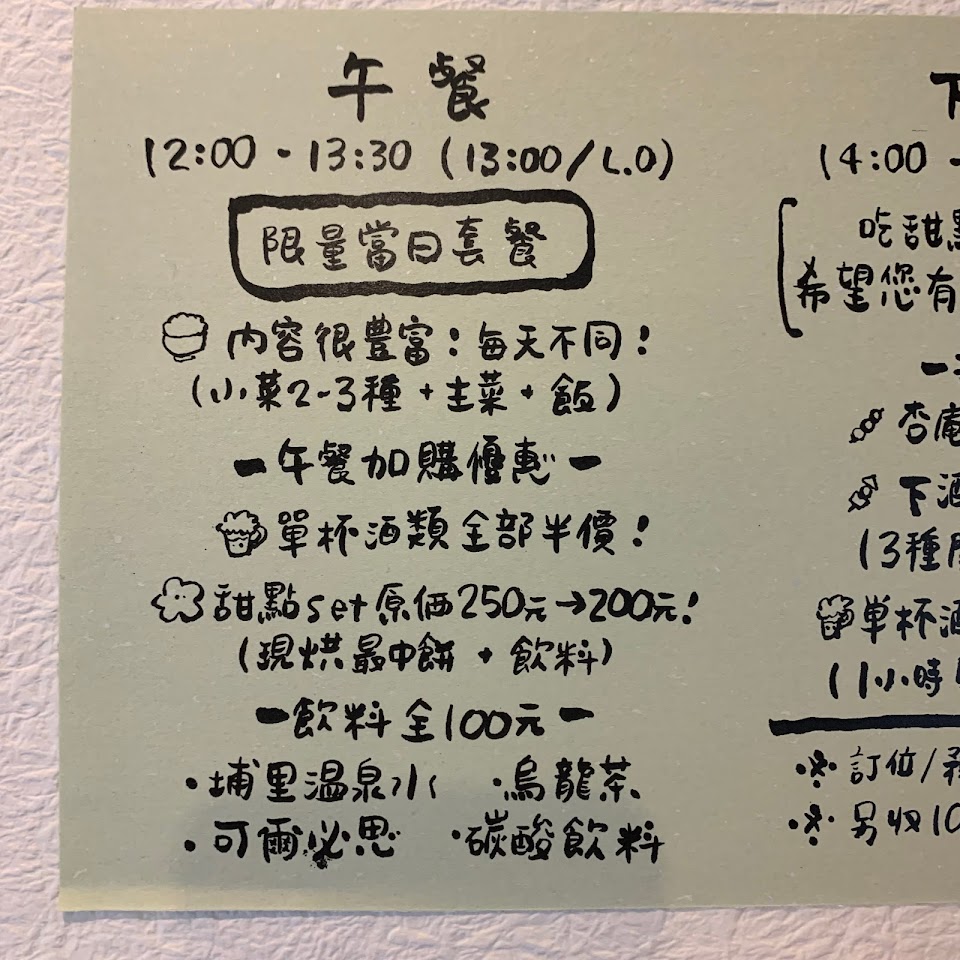 午餐
12:00 - 13:30 (13:00/L.O)
限量當日套餐
內容很豐富！每天不同！
(小菜2-3種 + 主菜 + 飯)
ー午餐加購優惠ー
單杯酒類全部半價！
甜點set原価250元→200元！
(現烘最中餅 + 飲料)
ー飲料全100元ー
・埔里温泉水 ・烏龍茶
・可爾必思 ・碳酸飲料
下
14:00 -
吃甜點
希望您有
ー
杏庵
下酒
(3種
単杯酒
(1小時
※ 訂位/
※ 另收10